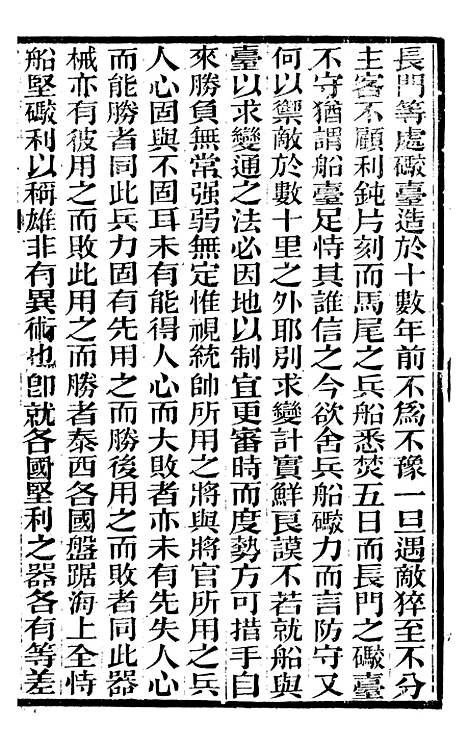 長門等處礮臺造於十數年前不爲不豫一旦遇敵猝至不分
主客不顧利鈍片刻而馬尾之兵船悉焚五日而長門之礮臺
不守猶謂船臺足恃其誰信之今欲舍兵船礮力而言防守又
何以禦敵於數十里之外耶別求變計實鮮良謨不若就船與
臺以求變通之法必因地以制宜更審時而度勢方可措手自
來勝負無常强弱無定惟視統帥所用之將與將官所用之兵
人心固與不固耳未有能得人心而大敗者亦未有先失人心
而能勝者同此兵力固有先用之而勝後用之而敗者同此器
械亦有彼用之而敗此用之而勝者泰西各國盤踞海上全恃
船堅礮利以稱雄非有異術也卽就各國堅利之器各有等差